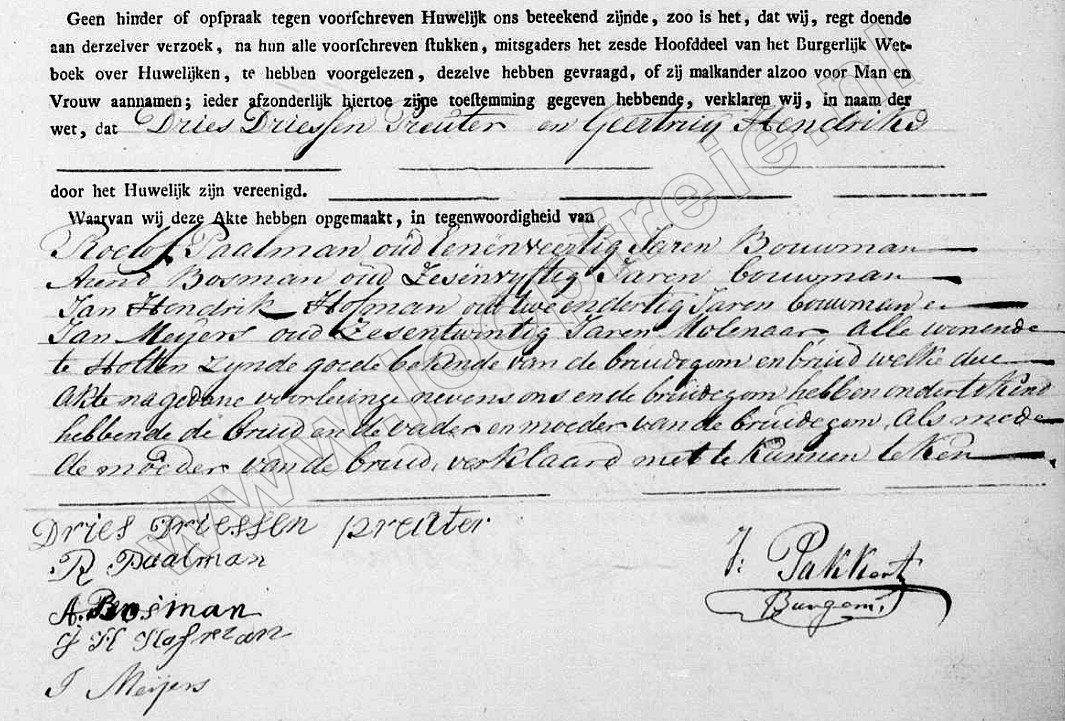 Geen hinder of opſpraak tegen voorſchreven Huwelijk ons beteekend zijnde, zoo is het, dat wij, regt doende
aan derzelver verzoek, na hun alle voorſchreven ſtukken, mitsgaders het zesde Hoofddeel van het Burgerlijk Wet-
boek over Huwelijken, te hebben voorgelezen, dezelve hebben gevraagd, of zij malkander alzoo voor Man en
Vrouw aannamen; ieder afzonderlijk hiertoe zijne toeſtemming gegeven hebbende, verklaren wij, in naam der
wet, dat Dries Driessen Preuter en Geertruij Hendriks
door het Huwelijk zijn vereenigd.
Waarvan wij deze Akte hebben opgemaakt, in tegenwoordigheid van
Roelof Paalman oud Eenënveertig Jaren Bouwman
Arend Bosman oud Zesënvyftig Jaren bouwman
Jan Hendrik Hofman oud twe endertig Jaren bouwman en
Jan Meijers oud Zesentwintig Jaren Molenaar alle wonende
te Holten zynde goede bekende van de bruidegom en bruid welke dese
Akte na gedane voorlesinge nevens ons en de bruidegom hebben onder tekend
hebbende de bruid en de vader en moeder van de bruidegom, als mede
de moeder van de bruid, verklaard niet te kunnen teken
Dries Driessen preuter
R Paalman
A. Bosman
J H Hofman
J Meijers
J: Pakkert
Burgem:
www.joopfreie.nl